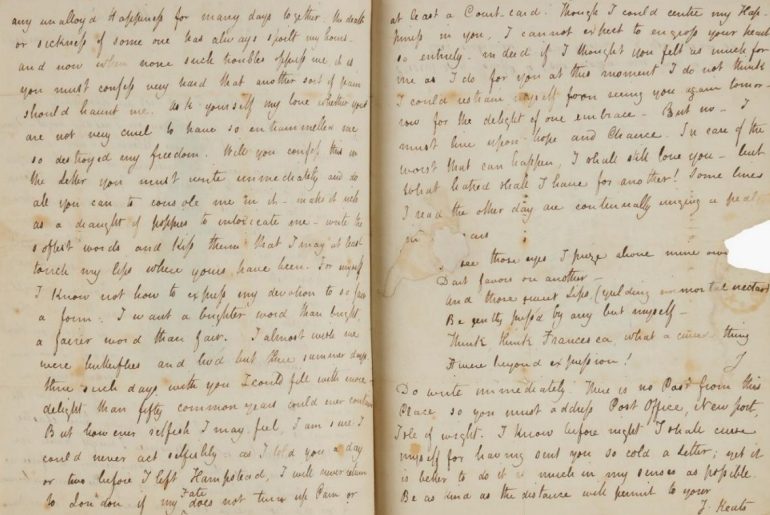 any unalloy'd Happiness for many days together: the death
or sickness of some one has always spoilt my hours
and now when none such troubles oppress me, it is
you must confess very hard that another sort of pain
should haunt me. Ask yourself my love whether you
are not very cruel to have so entrammelled me,
so destroyed my freedom. Will you confess this in
the Letter you must write immediately and do
all you can to console me in it - make it rich
as a draught of poppies to intoxicate me - write the
softest words and kiss them that I may at least
touch my lips where yours have been. For myself
I know not how to express my devotion to so fair
a form: I want a brighter word than bright,
a fairer word than fair. I almost wish we
were butterflies and liv'd but three summer days
three such days with you I could fill with more
delight than fifty common years could ever contain
But however selfish I may feel, I am sure I
could never act selfishly: as I told you a day
or two before I left Hampstead, I will never return
to London if my Fate does not turn up Pam or
at least a Court-card. Though I could centre my Hap-
piness in you, I cannot expect to engross your heart
so entirely - indeed if I thought you felt as much for
me as I do for you at this moment I do not think
I could restrain myself from seeing you again tomor-
row for the delight of one embrace. But no - I
must live upon hope and Chance. In case of the
worst that can happen, I shall still love you - but
what hatred shall I have for another! Some lines
I read the other day are continually ringing a peal
in ears
see those eyes I prize above mine own
Dart favors on another -
And those sweet lips, (yielding immortal nectar)
Be gently press'd by any but myself -
Think, think Francesca, what a cursed thing
It were beyond expression!
J
Do write immediately. There is no Post from this
Place, so you must address Post Office, Newport,
Isle of wight. I know before night I shall curse
myself for having sent you so cold a Letter; yet it
is better to do it as much in my senses as possible.
Be as kind as the distance will permit to your
J. Keats